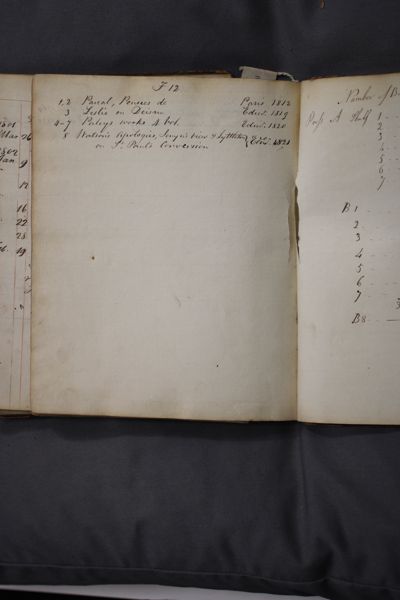 F 12
1,2 Pascal, Pensees de Paris 1812
3 Leslie on Deism Edinr. 1819
4-7 Paleys works 4 vol. Edinr. 1820
8 Watson's Apologies, Jenyns view & Lyttleton Edinr. 1821
on St. Pauls Conversion
Number of
Press A Shelf 1
2
3
4
5
6
7
B 1
2
3
4
5
6
7
B8
26
9
17
16
22
25
19